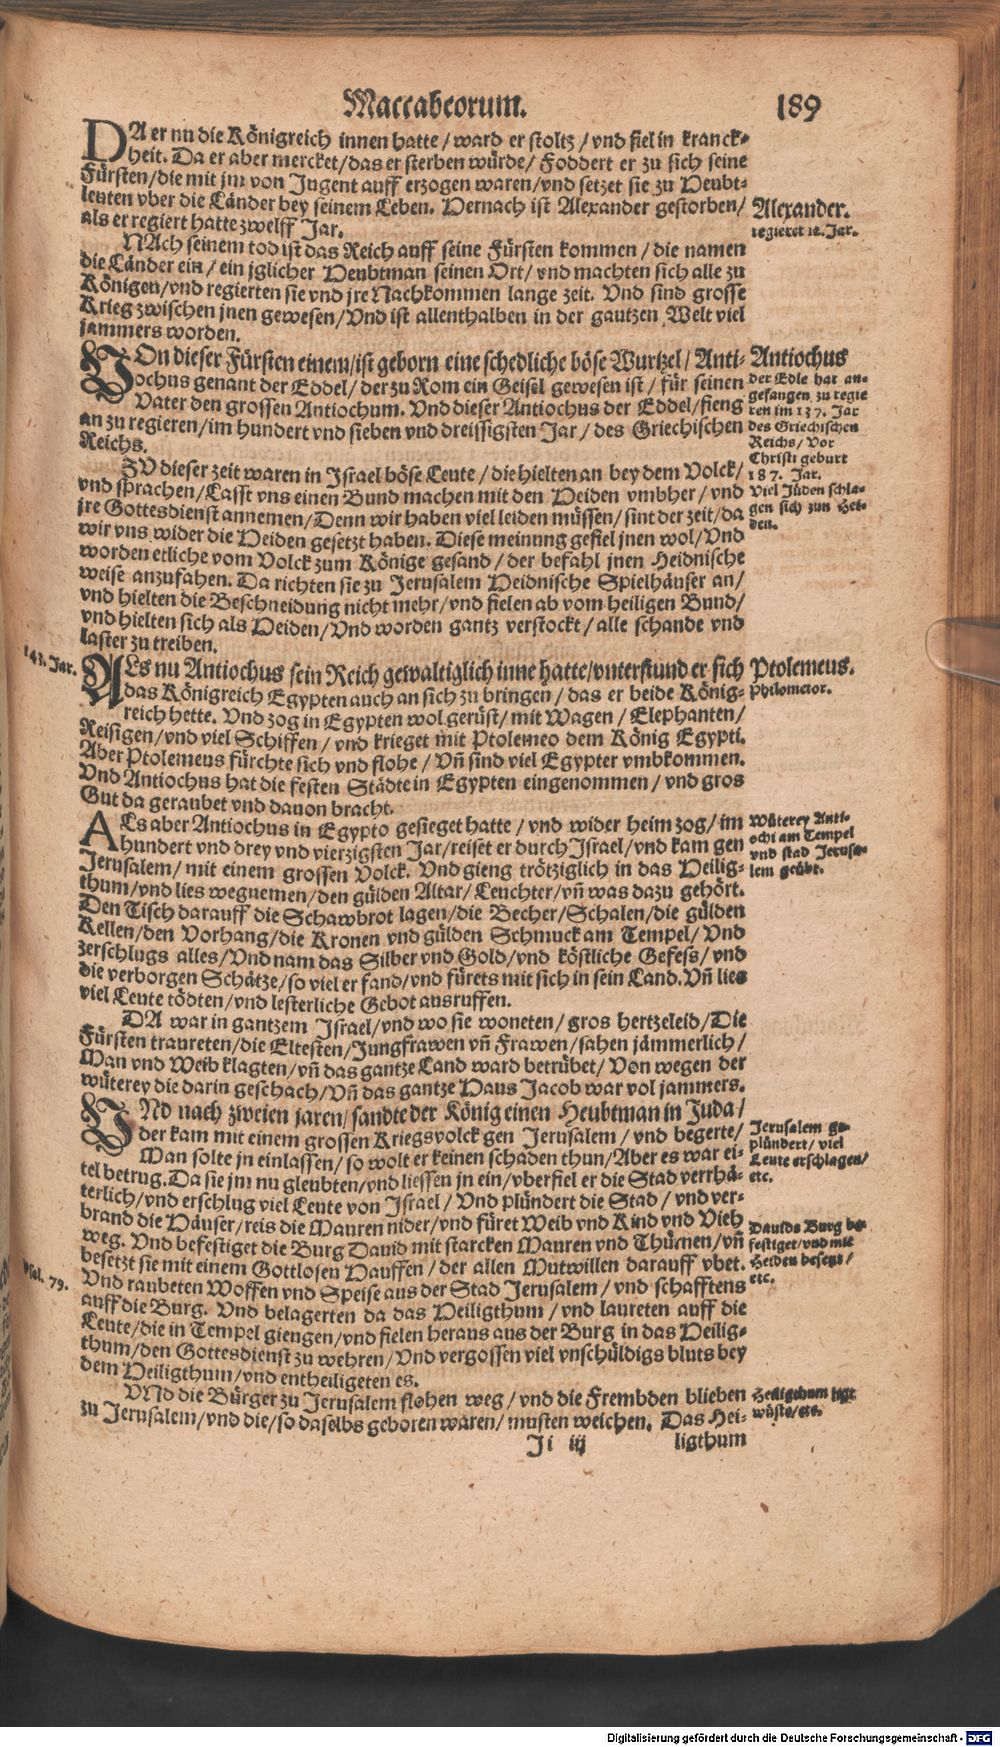 Maccabeorum. 189
DA er nu die Königreich innen hatte / ward er stoltz / vnd fiel in kranck-
heit. Da er aber mercket / das er sterben würde / Foddert er zu sich seine
Fürsten / die mit jm von Jugent auff erzogen waren / vnd setzet sie zu Heubt-
leuten vber die Länder bey seinem Leben. Hernach ist Alexander gestorben /
als er regiert hatte zwelff Jar.
Alexander.
regieret 12. Jar.
NAch seinem tod ist das Reich auff seine Fürsten kommen / die namen
die Länder ein / ein jglicher Heubtman seinen Ort / vnd machten sich alle zu
Königen / vnd regierten sie vnd jre Nachkommen lange zeit. Vnd sind grosse
Krieg zwischen jnen gewesen / Vnd ist allenthalben in der gantzen Welt viel
jammers worden.
VOn dieser Fürsten einem / ist geborn eine schedliche böse Wurtzel / Anti-
ochus genant der Eddel / der zu Rom ein Geisel gewesen ist / für seinen
Vater den grossen Antiochum. Vnd dieser Antiochus der Eddel / fieng
an zu regieren / im hundert vnd sieben vnd dreissigsten Jar / des Griechischen
Reichs.
Antiochus
der Edle hat an-
gefangen zu regie
ren im 137. Jar
des Griechischen
Reichs / Vor
Christi geburt
187. Jar.
ZV dieser zeit waren in Israel böse Leute / die hielten an bey dem Volck /
vnd sprachen / Lasst vns einen Bund machen mit den Heiden vmbher / vnd
jre Gottesdienst annemen / Denn wir haben viel leiden müssen / sint der zeit / da
wir vns wider die Heiden gesetzt haben. Diese meinung gefiel jnen wol / Vnd
worden etliche vom Volck zum Könige gesand / der befahl jnen Heidnische
weise anzufahen. Da richten sie zu Jerusalem Heidnische Spielhäuser an /
vnd hielten die Beschneidung nicht mehr / vnd fielen ab vom heiligen Bund /
vnd hielten sich als Heiden / Vnd worden gantz verstockt / alle schande vnd
laster zu treiben.
Viel Jüden schla-
gen sich zun Hei-
den.
143. Jar.
ALs nu Antiochus sein Reich gewaltiglich inne hatte / vnterstund er sich
das Königreich Egypten auch an sich zu bringen / das er beide König-
reich hette. Vnd zog in Egypten wol gerüst / mit Wagen / Elephanten /
Reisigen / vnd viel Schiffen / vnd krieget mit Ptolemeo dem König Egypti.
Aber Ptolemeus fürchte sich vnd flohe / Vñ sind viel Egypter vmbkommen.
Vnd Antiochus hat die festen Städte in Egypten eingenommen / vnd gros
Gut da geraubet vnd dauon bracht.
Ptolemeus.
Philometor.
ALs aber Antiochus in Egypto gesieget hatte / vnd wider heim zog / im
hundert vnd drey vnd vierzigsten Jar / reiset er durch Israel / vnd kam gen
Jerusalem / mit einem grossen Volck. Vnd gieng trötziglich in das Heilig-
thum / vnd lies wegnemen / den gülden Altar / Leuchter / vñ was dazu gehört.
Den Tisch darauff die Schawbrot lagen / die Becher / Schalen / die gülden
Kellen / den Vorhang / die Kronen vnd gülden Schmuck am Tempel / Vnd
zerschlugs alles / Vnd nam das Silber vnd Gold / vnd köstliche Gefess / vnd
die verborgen Schätze / so viel er fand / vnd fürets mit sich in sein Land. Vñ lies
viel Leute tödten / vnd lesterliche Gebot ausruffen.
Wüterey Anti-
ochi am Tempel
vnd stad Jerusa-
lem geübt.
DA war in gantzem Israel / vnd wo sie woneten / gros hertzeleid / Die
Fürsten traureten / die Eltesten / Jungfrawen vñ Frawen / sahen jämmerlich /
Man vnd Weib klagten / vñ das gantze Land ward betrübet / Von wegen der
wüterey die darin geschach / Vñ das gantze Haus Jacob war vol jammers.
VNd nach zweien jaren / sandte der König einen Heubtman in Juda /
der kam mit einem grossen Kriegsvolck gen Jerusalem / vnd begerte /
Man solte jn einlassen / so wolt er keinen schaden thun / Aber es war ei-
tel betrug. Da sie jm nu gleubten / vnd liessen jn ein / vberfiel er die Stad verrhä-
terlich / vnd erschlug viel Leute von Israel / Vnd plündert die Stad / vnd ver-
brand die Häuser / reis die Mauren nider / vnd füret Weib vnd Kind vnd Vieh
weg. Vnd befestiget die Burg Dauid mit starcken Mauren vnd Thürnen / vñ
besetzt sie mit einem Gottlosen Hauffen / der allen Mutwillen darauff vbet.
Vnd raubeten Woffen vnd Speise aus der Stad Jerusalem / vnd schafftens
auff die Burg. Vnd belagerten da das Heiligthum / vnd laureten auff die
Leute / die in Tempel giengen / vnd fielen heraus aus der Burg in das Heilig-
thum / den Gottesdienst zu wehren / Vnd vergossen viel vnschüldigs bluts bey
dem Heiligthum / vnd entheiligeten es.
Jerusalem ge-
plündert / viel
Leute erschlagen /
etc.
Dauids Burg be
festiget / vnd mit
Heiden besetzt /
etc.
Psal. 79.
VNd die Bürger zu Jerusalem flohen weg / vnd die Frembden blieben
zu Jerusalem / vnd die / so daselbs geboren waren / musten weichen. Das Hei-
Heiligthum ligt
wüste / etc.
Ji iij ligthum
Digitalisierung gefördert durch die Deutsche Forschungsgemeinschaft - DFG